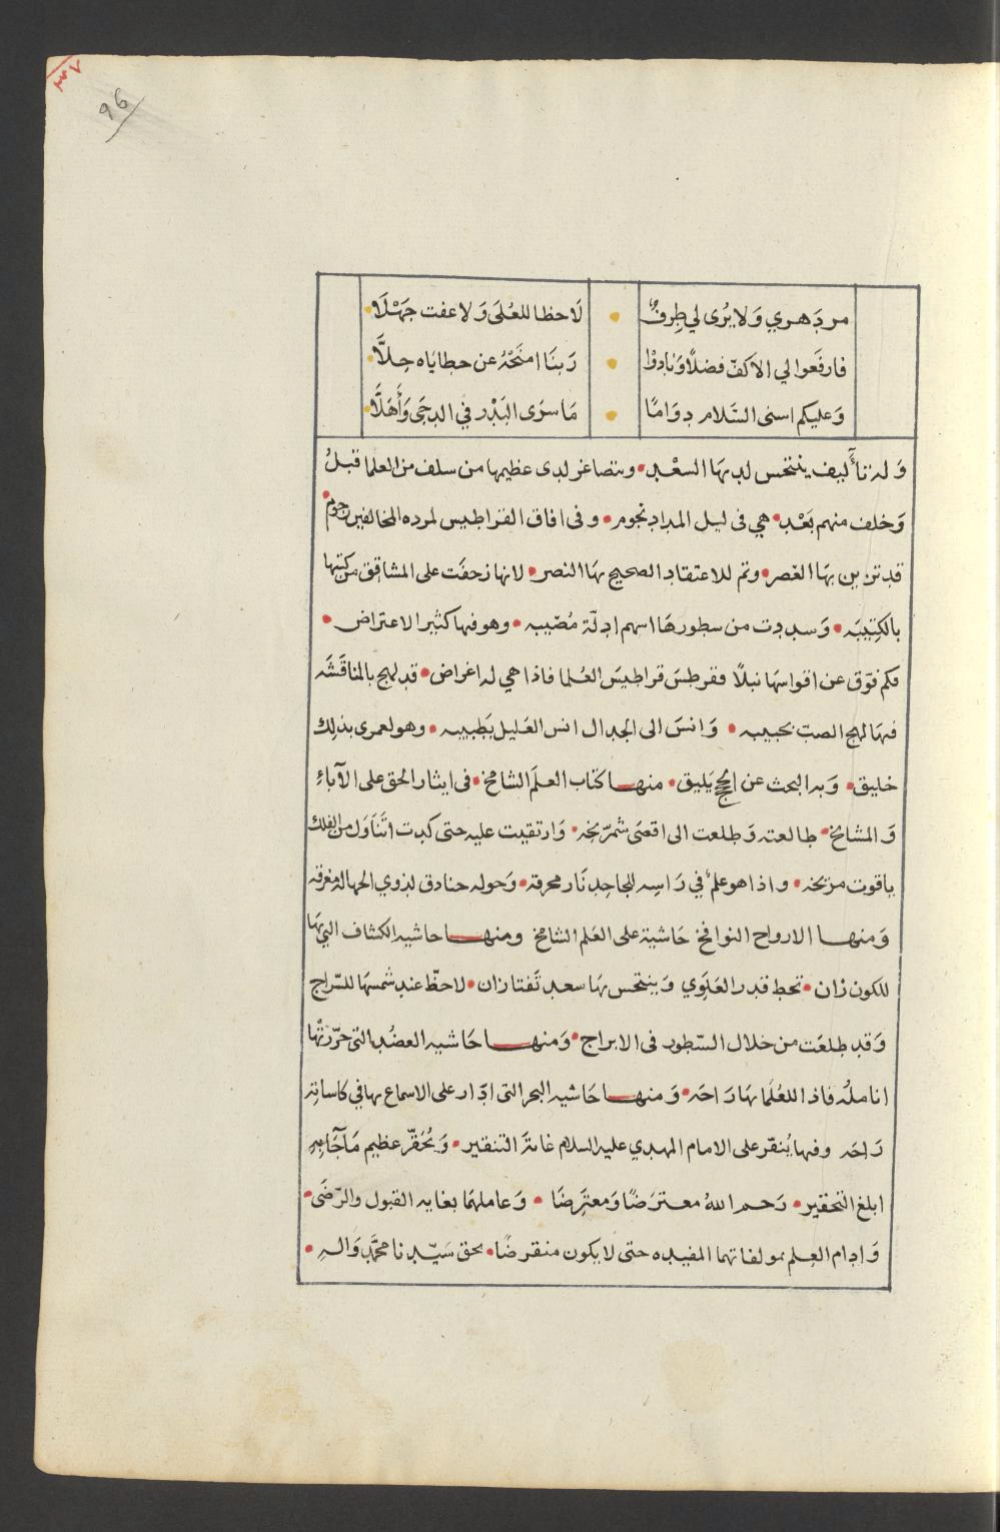 ٣٧
96
مر دهري وَلا يُرى لي طِرفٌ • لَاحظا للعُلَى وَلا عفت جَهْلَا
فارفَعوا لي الاكفّ فضلًا وَنادوْا • رَبنَا امنَحْهُ عن خطايَاه حِلَّا
وَعليكم اسنى السَّلام دوَامًا • مَا سرَى البَدْر في الدجَى وَأَهَلَّا
وَله تآليف ينتحس لديهَا السعْد • ويتصاغر لدى عظيمها من سلف من العلما قبلُ
وَخلف منهم بَعْد • هي في ليل المداد نجوم • وفي افاق القراطيس لمرده المخالفين رجوم
قد تزين بهَا العَصر • وتم للاعتقاد الصحيح بهَا النصر • لانها زحفَت على المشاقق من كتبها
بالكتِيبَه • وَسددت من سطورهَا اسهم ادِلّة مُصّيبه • وهو فيها كثير الاعتراض •
فكم فوّق عن اقواسهَا نبلًا فقرطسَ قراطيسَ العُلما فاذا هي له اغراض • قد لهج بالمناقَشَه
فيهَا لهج الصب بحبيبه • وَانسَ الى الجدال انس العَليل بَطبيبه • وهو لعمرى بذلك
خليق • وَبه البحث عن الحجج يَليق • منهـــا كتاب العلَم الشامخ • في ايثار الحق على الآباءِ
وَالمشايخ • طالعته وَطلعت الى اقصَى شمرّيخه • وَارتقيت عليه حتى كدت اتنَاوَل من الفلك
ياقوت مرّيخه • واذا هو علم في رَاسِه للجاحِد نَار محرقة • وَحوله خنادق لذوي الجهاله مغرقه
وَمنهـــا الارواح النوافخ حَاشية على العَلم الشامخ ومنهـــا حاشيه الكشاف التي بهَا
للكون زان • تحط قدر العَلوي وَينتحس بهَا سعد تَفتازان • لاحظّ عند شمسهَا للسّراج
وَقد طلعَت من خلال السّطور في الابراج • وَمنهـــا حَاشيه العضُد التي حرّرتْها
اناملُه فاذا للعُلَما بهَا رَاحَه • وَمنهـــا حَاشيه البحر التي ادَار على الاسماع بها في كاساته
رَاحَه وفيها يُنقّر على الامام المهدي عليه السلام غاية التنقير • وَيُحَقّر عظيم مَا جَآء بِهِ
ابلغ التحقير • رَحم اللهُ معترَضًا وَمعترِضًا • وَعاملهمَا بغايه القبول والرّضَى •
وَادام العِلم بمولفاتهما المفيده حتى لا يكون منقرضًا • بحق سَيّدنا محمَّد وَالهِ •